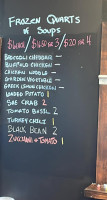 FROZEN QUARTS
OF SOUPS
BROCCOLI CHEDDAR -
BUFFALO CHICKEN -
CHICKEN NOODLE -
GARDEN VEGETABLE -
GREEK LEMON CHICKEN -
LOADED POTATO 1
SHE CRAB 2
TOMATO BASIL 2
TURKEY CHILI 1
BLACK BEAN 2
ZUCCHINI & TOMATO 1